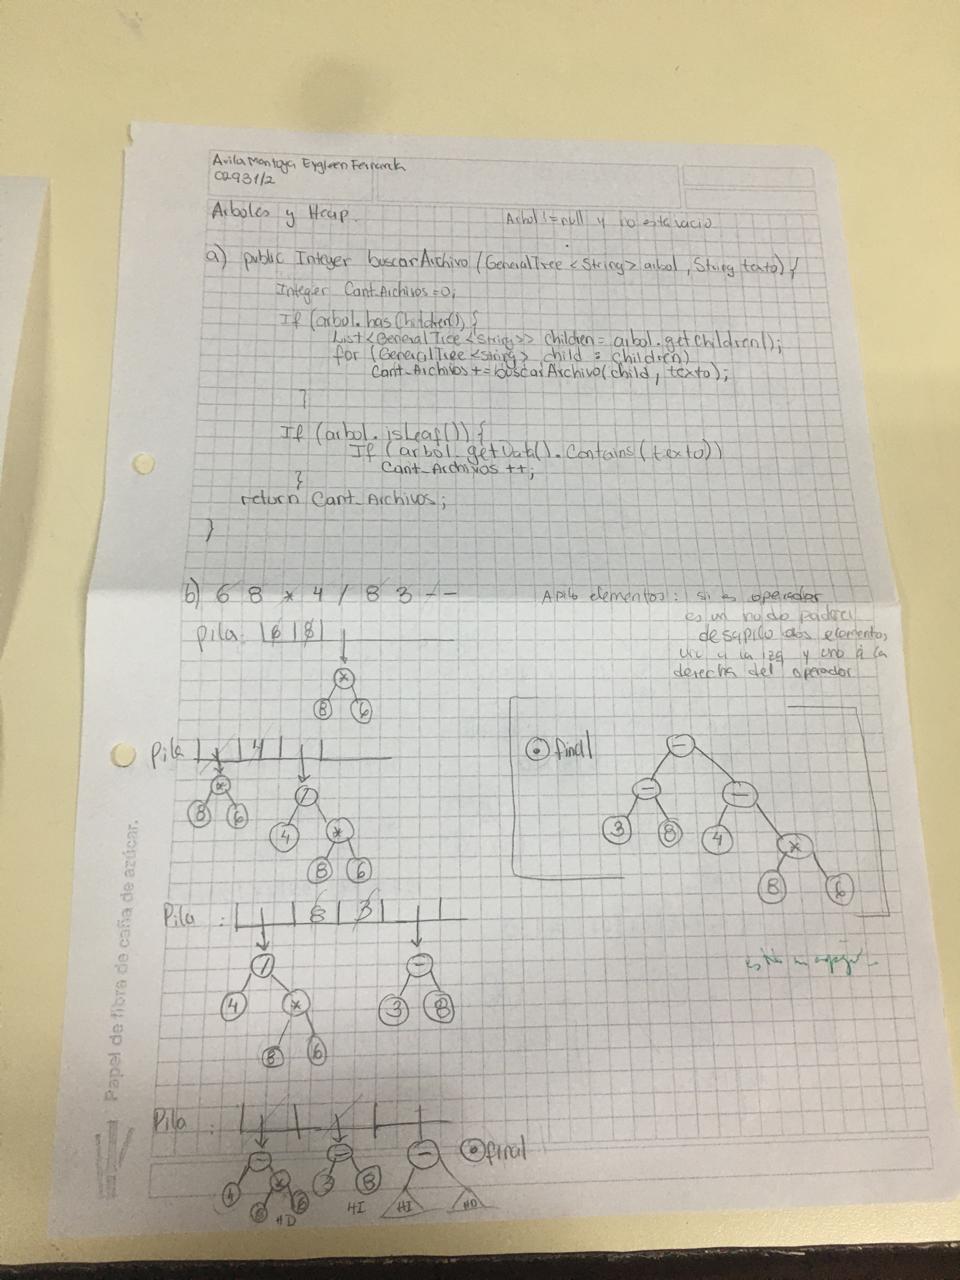 Avila Montoya Eygleen Fernanda
02931/2
Arboles y Heap.
Arbol != null y no esta vacio
a) public Integer buscarArchivo (GeneralTree <String> arbol, String texto) {
Integer Cant_Archivos = 0;
If (arbol.hasChildren()) {
List <GeneralTree <String>> children = arbol.getChildren();
for (GeneralTree <String> child : children)
Cant_Archivos += buscarArchivo(child, texto);
}
If (arbol.isLeaf()) {
If (arbol.getData().Contains(texto))
Cant_Archivos ++;
}
return Cant_Archivos;
}
b) 6 8 * 4 / 8 3 - -
Apilo elementos: si es operador
es un nodo padre,
desapilo dos elementos,
uno a la izq y uno a la
derecha del operador
pila: 6 8
*
8 6
Pila 4
* /
8 6 4 *
8 6
final
-
- -
3 8 4 *
8 6
Pila : 8 3
/ -
4 * 3 8
8 6
Pila :
- - - final
4 * 3 8
8 6
HD HI HI HD
Papel de fibra de caña de azúcar.